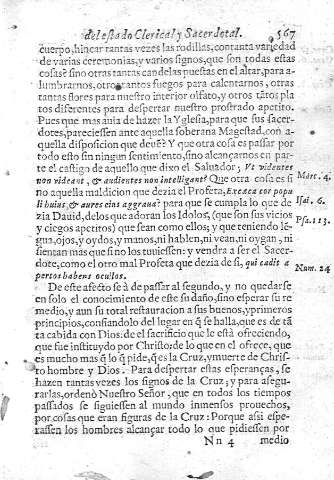 del estado Clerical, y Sacerdotal. 567
cuerpo, hincar tantas vezes las rodillas, con tanta variedad
de varias ceremonias, y varios signos, que son todas estas
cosas? sino otras tantas candelas puestas en el altar, para a-
lumbrarnos, otros tantos fuegos para calentarnos, otras
tantas flores para nuestro interior olfato, y otros tãtos pla
tos diferentes para despertar nuestro prostrado apetito.
Pues que mas auia de hazer la Yglesia, para que sus sacer-
dotes, pareciessen ante aquella soberana Magestad, con a-
quella disposicion que deuẽ? Y que otra cosa es passar por
todo esto sin ningun sentimiento, sino alcançarnos en par-
te el castigo de aquello que dixo el Saluador; Vt videntes
non videant, & audientes non intelligant? Que otra cosa es si
no aquella maldicion que dezia el Profeta, Excæca cor popu
li huius, & aures eius aggraua? para que se cumpla lo que de
zia Dauid, delos que adoran los Idolos, (que son sus vicios
y ciegos apetitos) que sean como ellos; y que teniendo lé-
gua, ojos, y oydos, y manos, ni hablen, ni vean, ni oygan, ni
sientan mas que si no los tuuiessen: y vendra a ser el Sacer-
dote, como el otro mal Profeta que dezia de si, qui cadit a
pertos habens oculos.
Marc. 4.
Isai. 6.
Psa. 113.
Num. 24
De este afecto se à de passar al segundo, y no quedarse
en solo el conocimiento de este su daño, sino esperar su re
medio, y aun su total restauracion a sus buenos, y primeros
principios, confiandolo del lugar en q̃ se halla, que es de tã
ta cabida con Dios: de el sacrificio que le està ofreciendo,
que fue instituydo por Christo: de lo que en el ofrece, que
es mucho mas q̃ lo q̃ pide, q̃ es la Cruz, y muerte de Chris-
to hombre y Dios. Para despertar estas esperanças, se
hazen tantas vezes los signos de la Cruz; y para asegu-
rarlas, ordenò Nuestro Señor, que en todos los tiempos
passados se siguiessen al mundo inmensos prouechos,
por cosas que eran figuras de la Cruz: Porque assi espe-
rassen los hombres alcançar todo lo que pidiessen por
Nn 4 medio